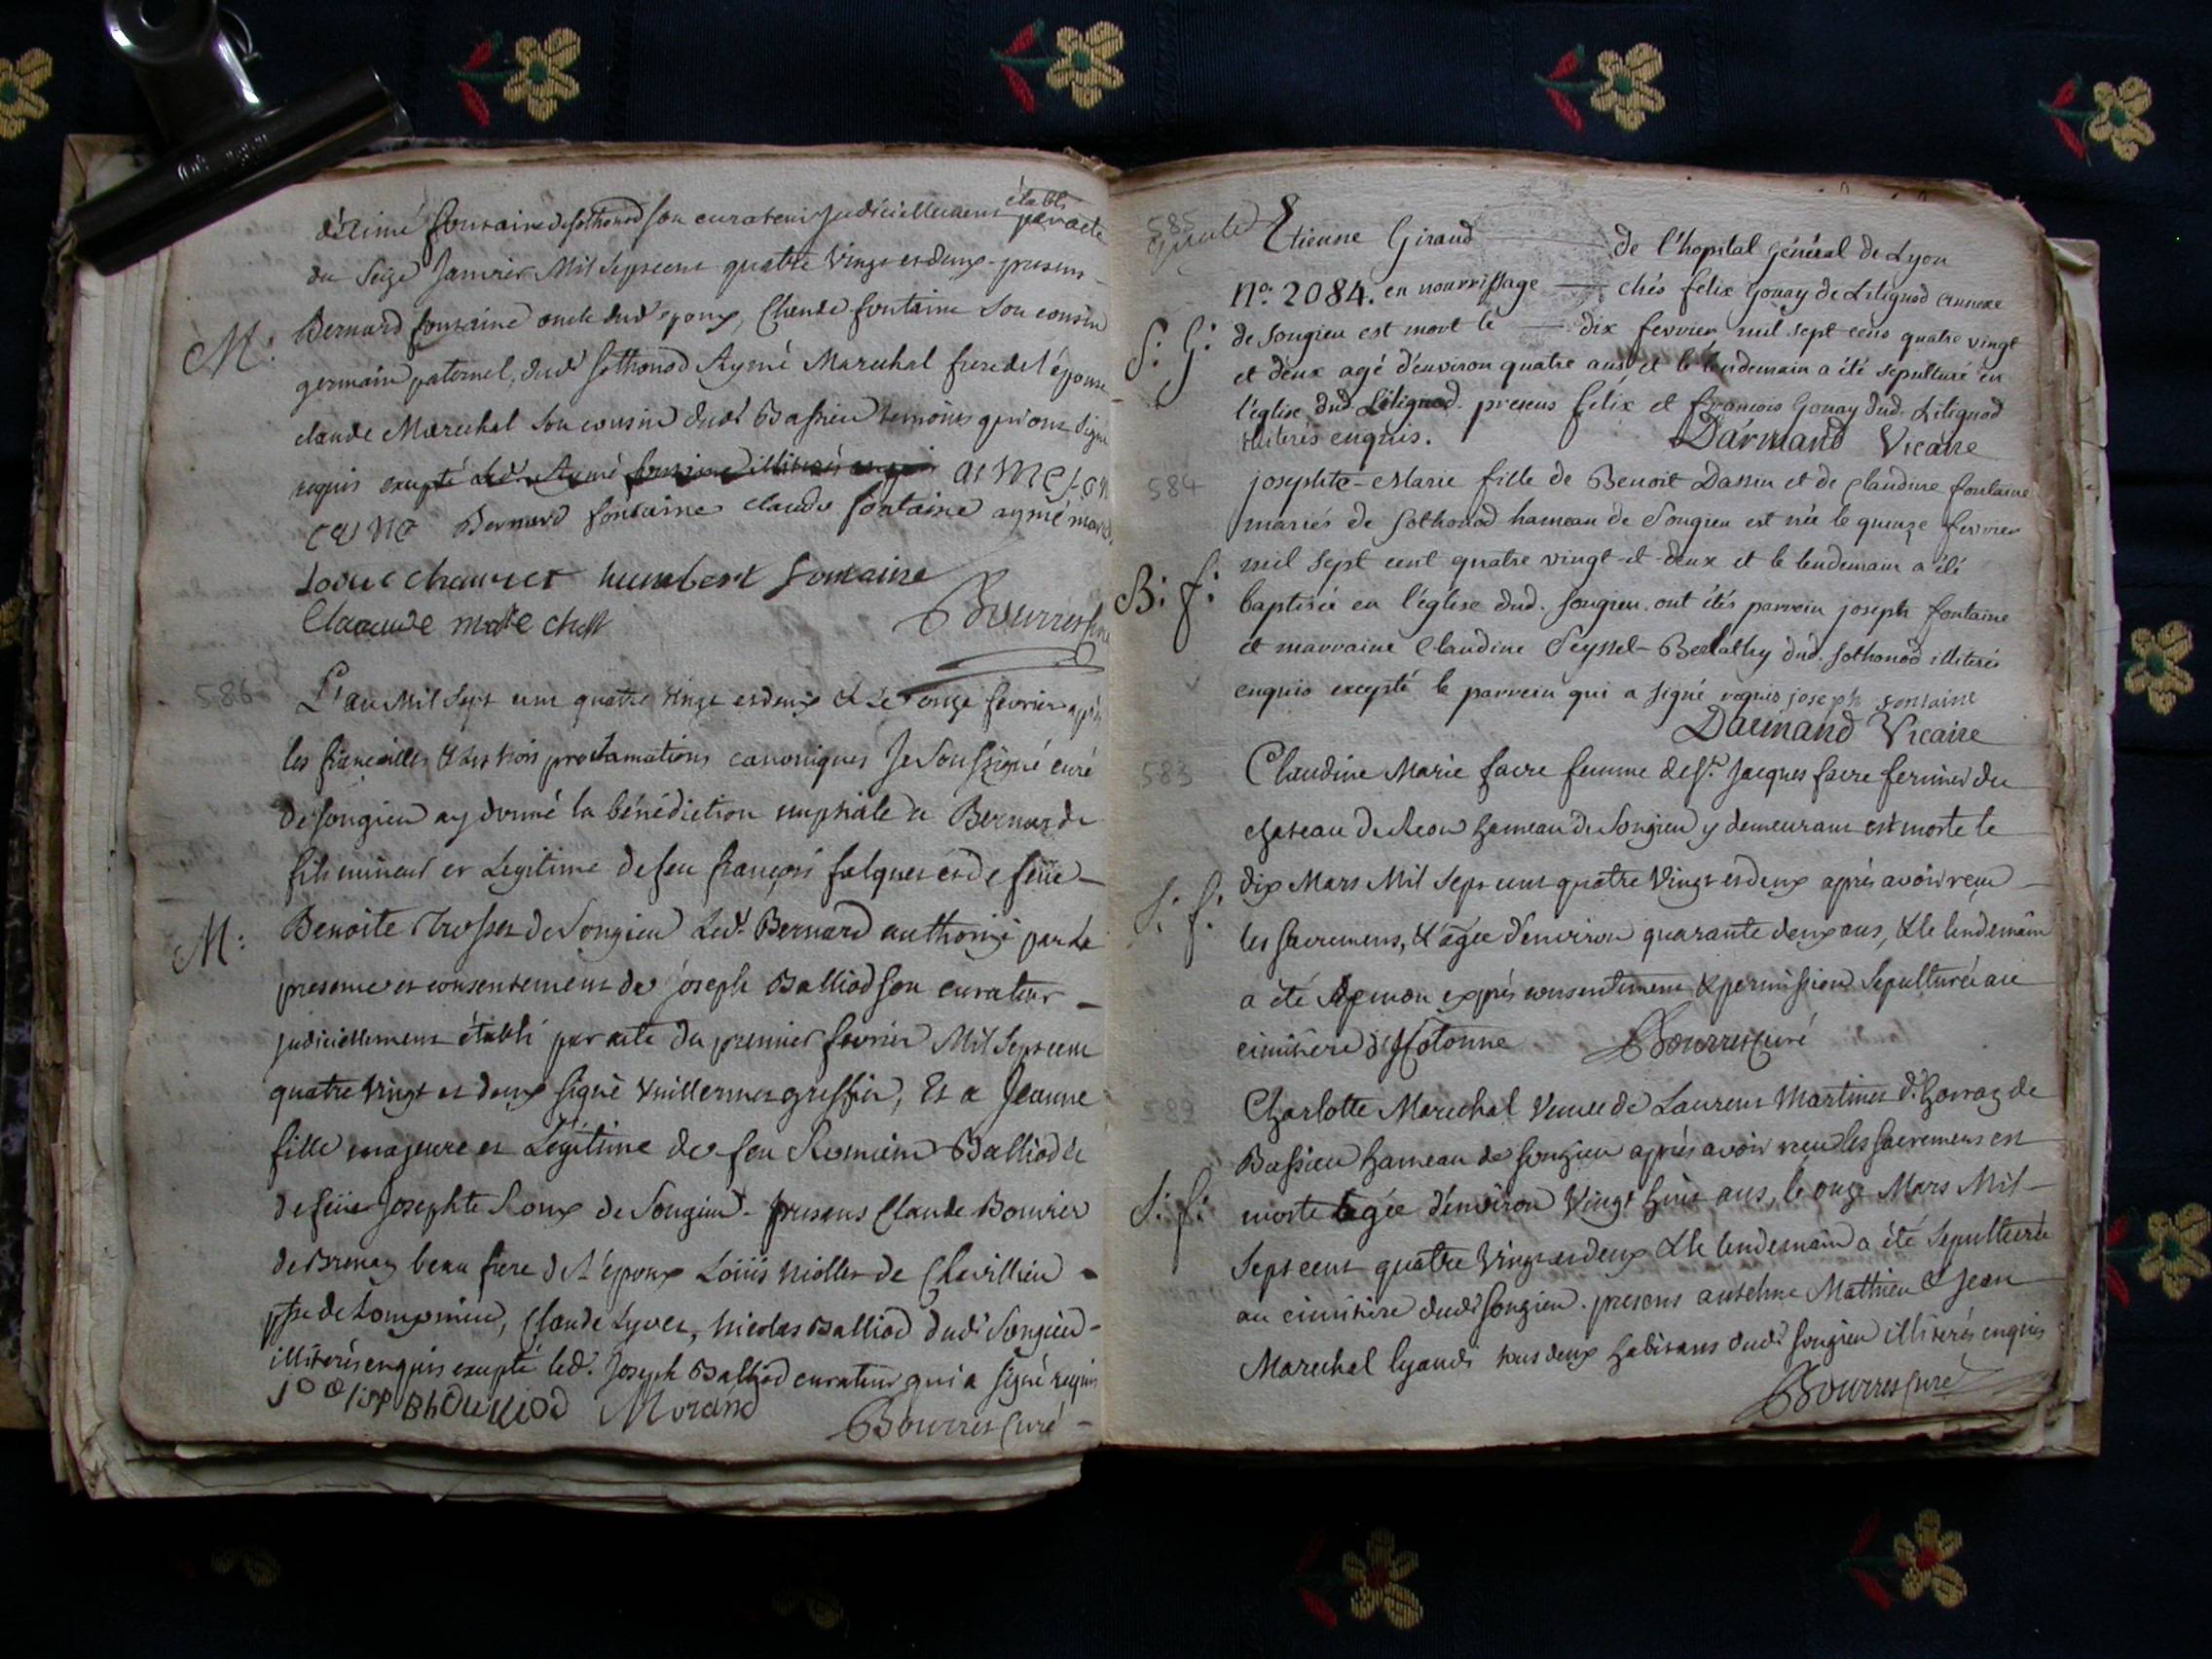 établi
d'Aimé fontaine de Sothonod son curateur judiciellement par acte
du Seize Janvier Mil Sept cent quatre Vingt et deux. presens
M: Bernard fontaine oncle dud' epoux, Claude fontaine Son cousin
germain paternel, dud' Sothonod Aymé Marechal frere de l'épouse
claude Marechal Son cousin dud' Bassieu temoins qui ont signé
requis excepté led. Aymé
Bernard fontaine claude fontaine aymé
humbert fontaine
Claude
Bourret
586 L'an Mil Sept cent quatre vingt et deux & Le onze fevrier après
les fiancailles & les trois proclamations canoniques Je Soussigné curé
de Songieu ay donné la bénédiction nuptiale a Bernard
fils mineur et Legitime de feu françois falquet et de feüe
M: Benoite de Songieu Led. Bernard authorisé par la
presence et consentement de joseph Balliod son curateur
judiciellement établi par acte du premier fevrier Mil Sept cent
quatre Vingt et deux signé Vuillermet greffier, Et a Jeanne
fille majeure et Legitime de feu Romain Balliod et
de feüe Josephte Roux de Songieu. presens Claude Bouvier
de Brenaz beau frere de l'époux Loüis de Chevillieu
psse de Lompnieu, Claude Lyvet, Nicolas Balliod dud' Songieu
illiterés enquis excepté led. Joseph Balliod curateur qui a signé requis
Morand
Bourret Curé
585 Etienne Giraud de l'hopital général de Lyon
No. 2084. en nourrissage chés felix Gonay de Litignod annexe
S: G: de Songieu est mort le dix fevrier mil sept cens quatre vingt
et deux agé d'environ quatre ans, et le lendemain a été sepulturé en
l'église dud. Litignod. presens félix et francois Gonay dud. Litignod
illiterés enquis. Darmand Vicaire
584 josephte-Marie fille de Benoit Dassin et de Claudine fontaine
mariés de Sothonod hameau de Songieu est née le quinze fevrier
mil sept cent quatre vingt-et-deux et le lendemain a été
B: f: baptisée en l'église dud. Songieu. ont étés parrein joseph fontaine
et marraine Claudine Seyssel-Berlathy dud. Sothonod illiterés
enquis excepté le parrein qui a signé requis joseph fontaine
Darmand Vicaire
583 Claudine Marie favre femme de Sr. Jacques favre fermier du
chateau de hameau de Songieu y demeurant est morte le
dix Mars Mil Sept cent quatre Vingt et deux après avoir reçu
S: f: les Sacremens, & agée d'environ quarante deux ans, & le lendemain
a été de mon exprès consentement & permission Sepulturée au
cimitiere d'Hotonne Bourret Curé
582 Charlotte Marechal Veuve de Laurent Martinet de
Bassieu hameau de Songieu après avoir reçu les Sacremens est
S: f: morte agée d'environ Vingt huit ans, le onze Mars Mil
Sept cent quatre Vingt et deux & le lendemain a été Sepulturée
au cimitiere dud' Songieu. presens antelme Mathieu & Jean
Marechal tous deux habitans dud' Songieu illiterés enquis
Bourret Curé